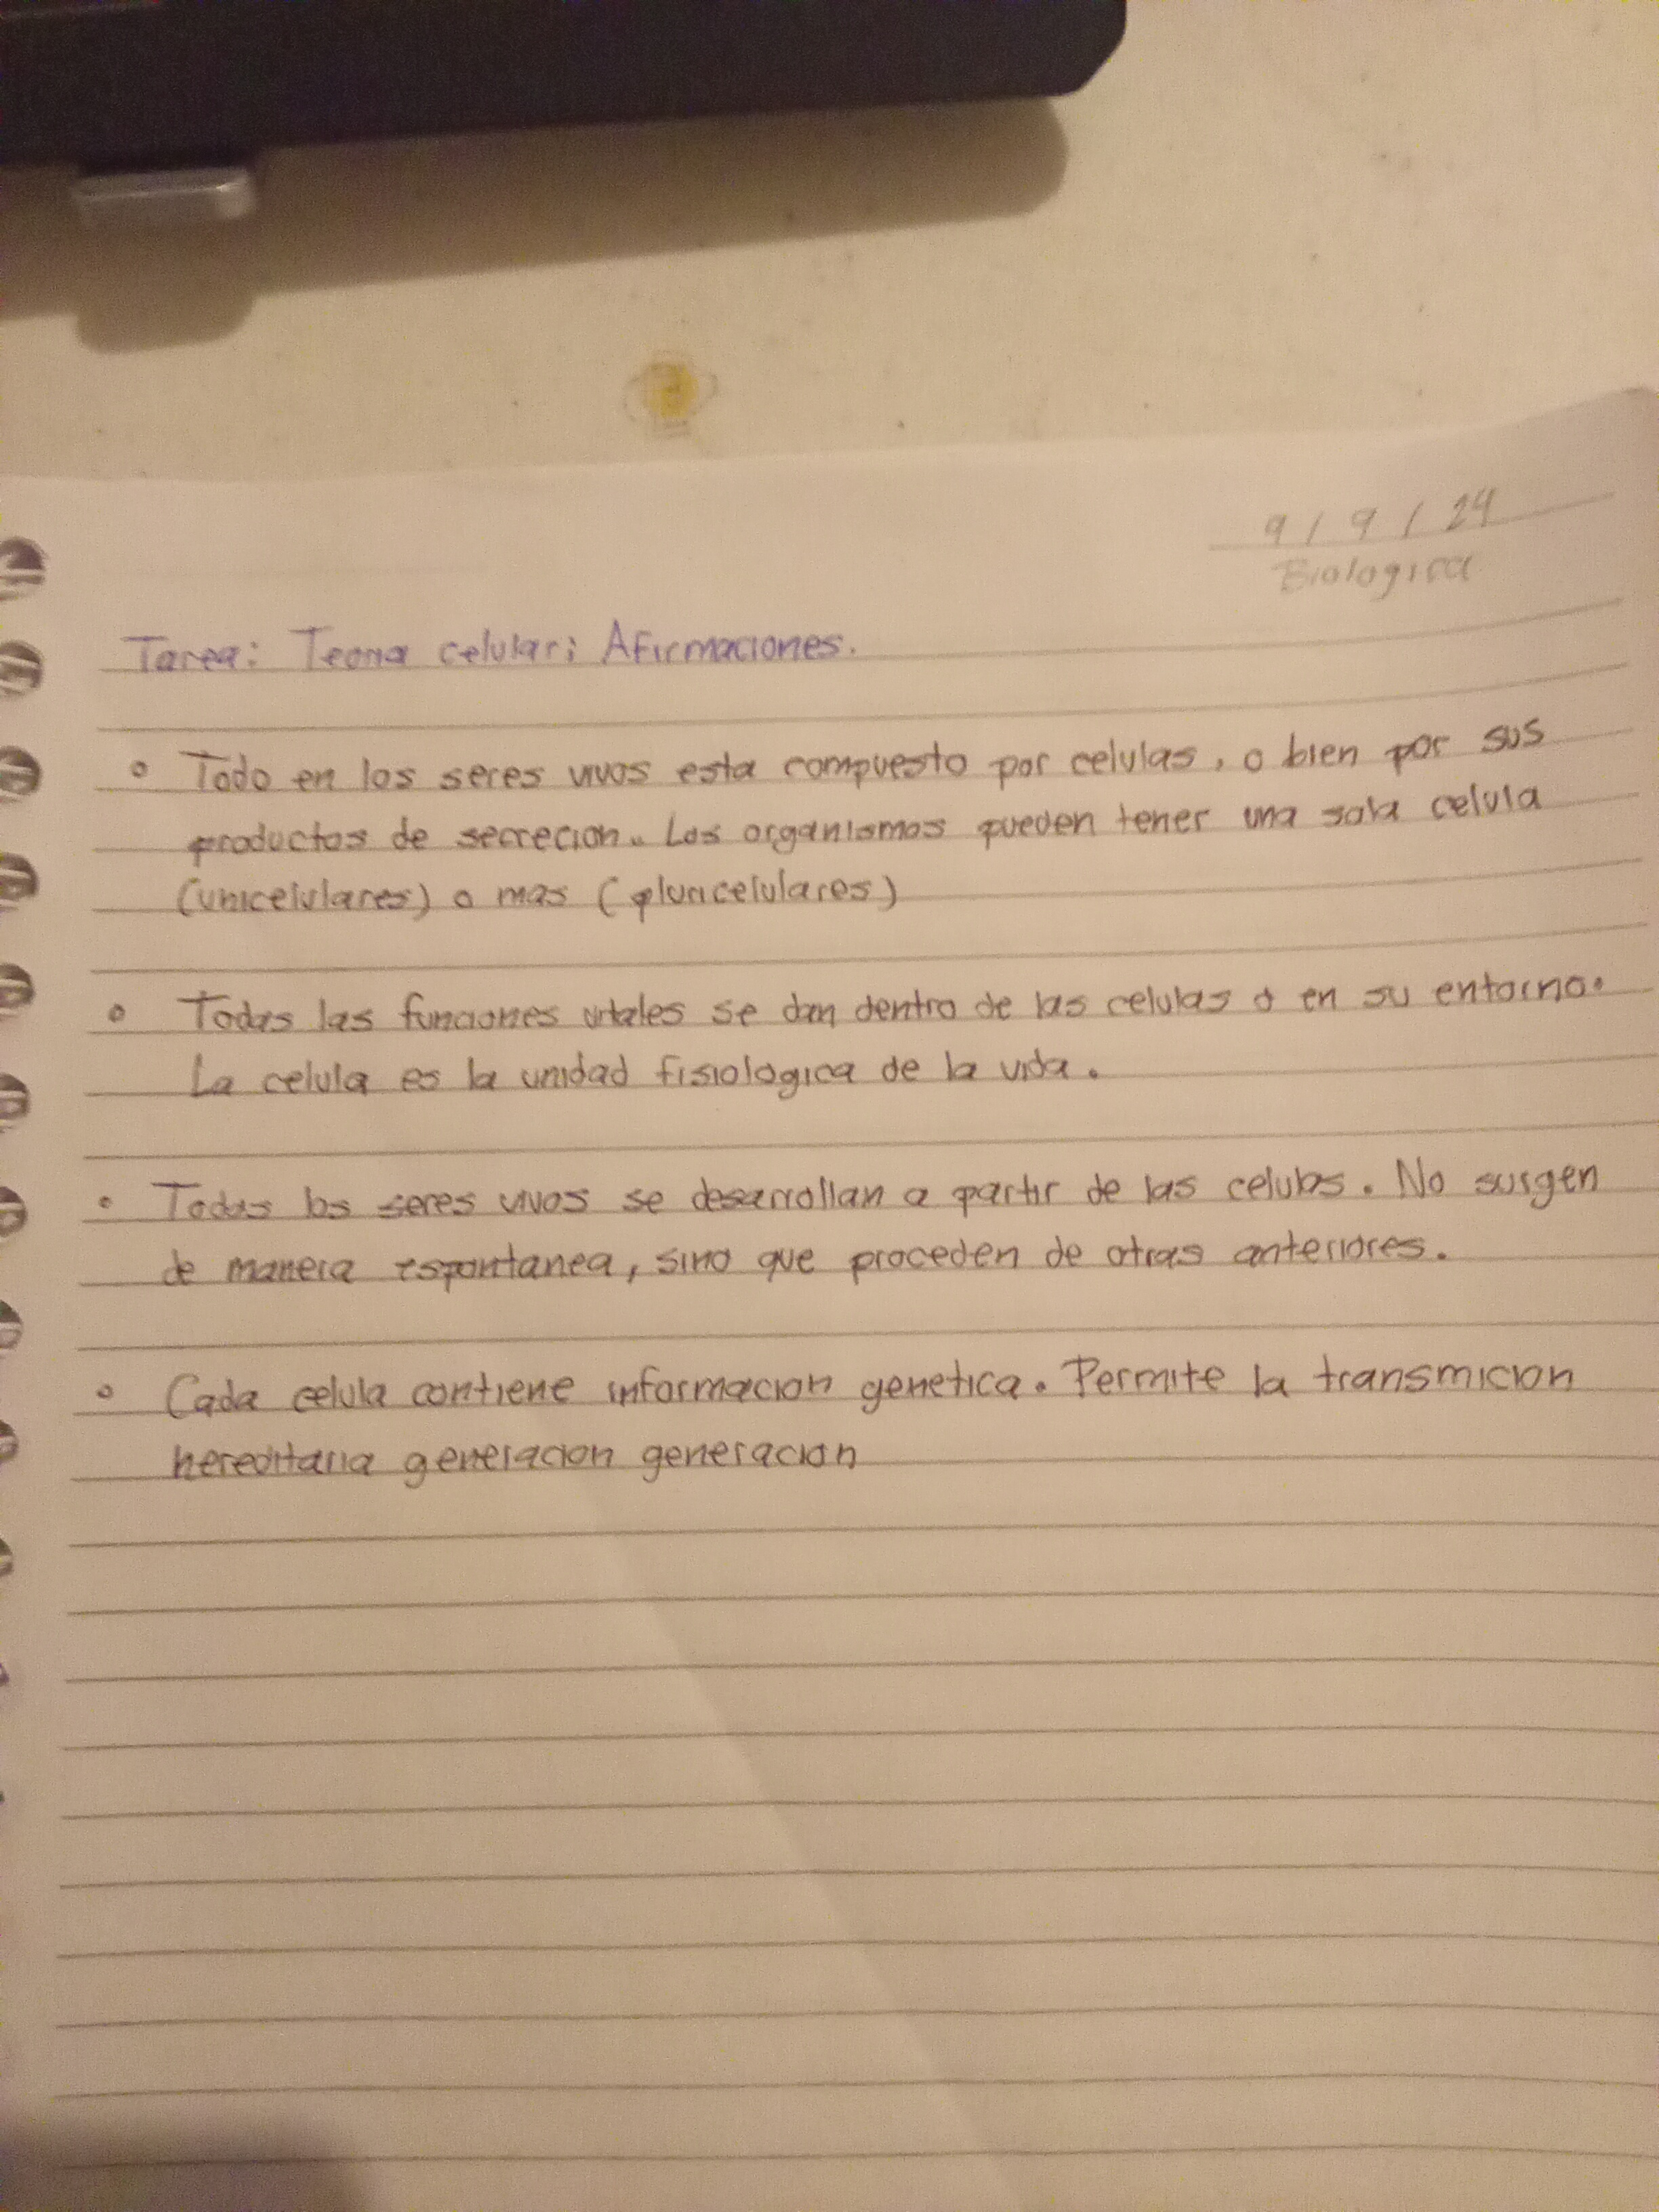 9 / 9 / 24
Biologica
Tarea: Teoria celular; Afirmaciones.
° Todo en los seres vivos esta compuesto por celulas, o bien por sus
productos de secrecion. Los organismos pueden tener una sola celula
(unicelulares) o mas (pluricelulares)
° Todas las funciones vitales se dan dentro de las celulas o en su entorno.
La celula es la unidad fisiologica de la vida.
° Todos los seres vivos se desarrollan a partir de las celulas. No surgen
de manera espontanea, sino que proceden de otras anteriores.
° Cada celula contiene informacion genetica. Permite la transmicion
hereditaria generacion generacion